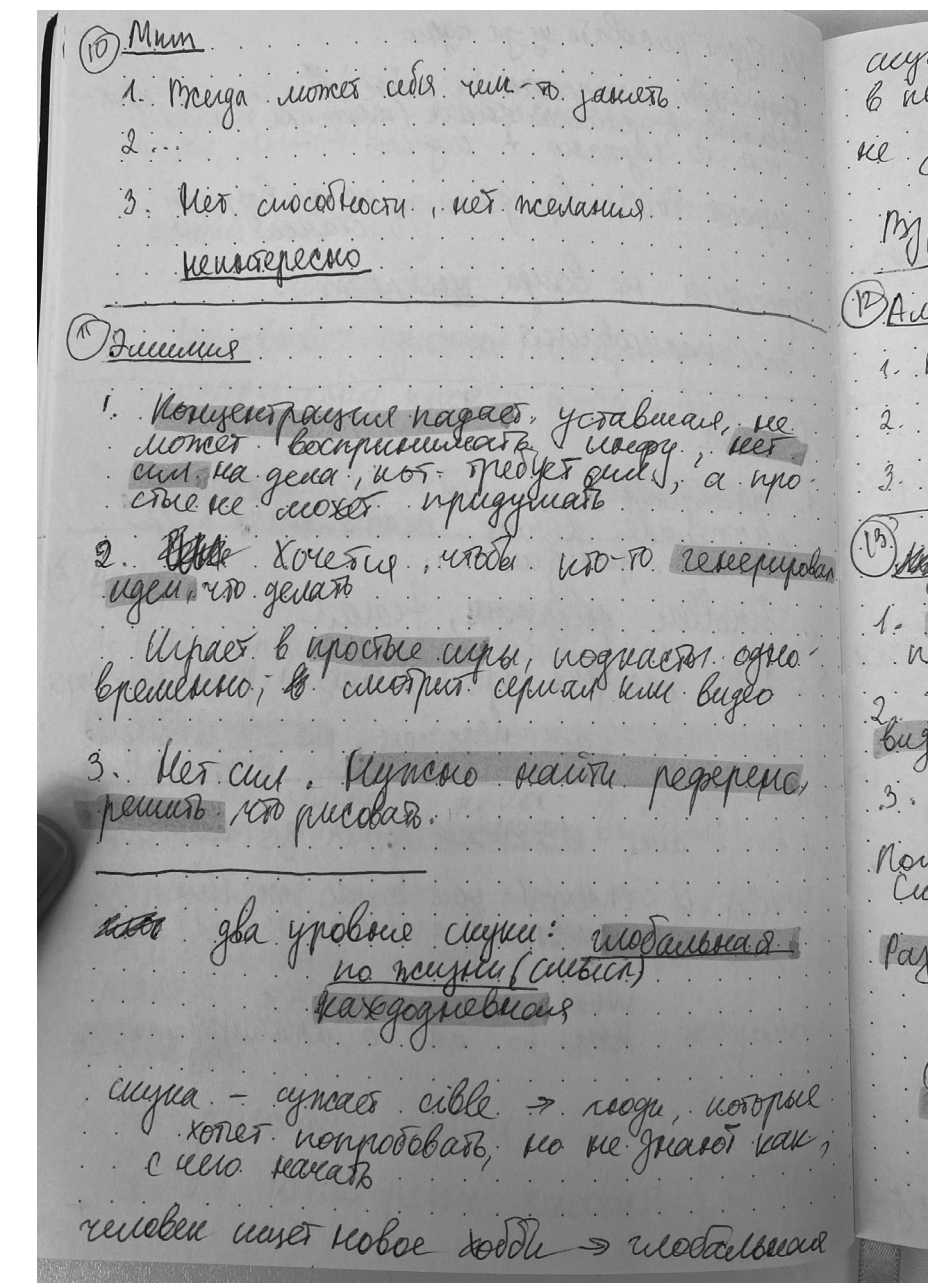 10 Мит
1. Всегда может себя чем-то занять
2 ...
3. Нет способности, нет желания.
неинтересно
11 Эмилия
1. Концентрация падает, уставшая, не
может воспринимать инфу, нет
сил на дела, кот. требует сил, а про-
стые не может придумать
2. Хочется, чтобы кто-то генерировал
идеи, что делать
Играет в простые игры, подкасты одно-
временно, смотрит сериал или видео
3. Нет сил. Нужно найти референс,
решить что рисовать.
два уровня скуки: глобальная
по жизни (смысл)
каждодневная
скука – сужает cible → люди, которые
хотят попробовать, но не знают как,
с чего начать
человек ищет новое хобби → глобальная
ску
в пе
не
12 Ал
1.
2.
3.
13
1.
п
2.
вид
3.
Пог
Раз